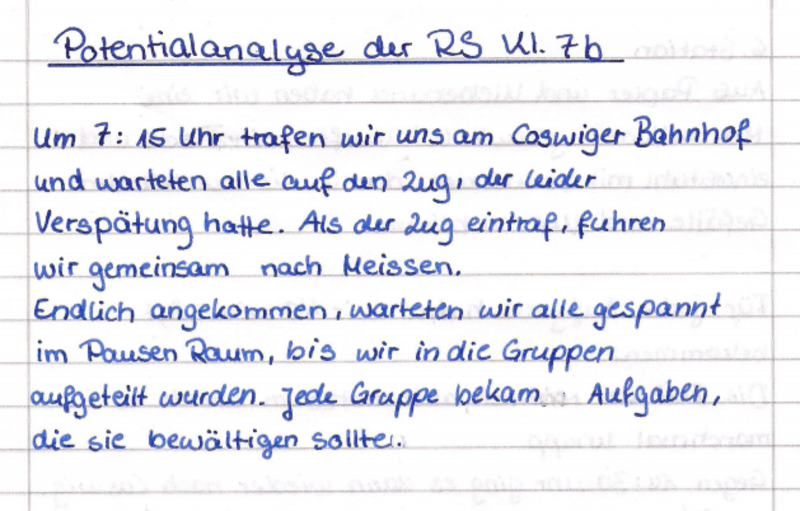 Potentialanalyse der RS Kl. 7b
Um 7:15 Uhr trafen wir uns am Coswiger Bahnhof
und warteten alle auf den Zug, der leider
Verspätung hatte. Als der Zug eintraf, fuhren
wir gemeinsam nach Meissen.
Endlich angekommen, warteten wir alle gespannt
im Pausen Raum, bis wir in die Gruppen
aufgeteilt wurden. Jede Gruppe bekam Aufgaben,
die sie bewältigen sollte.